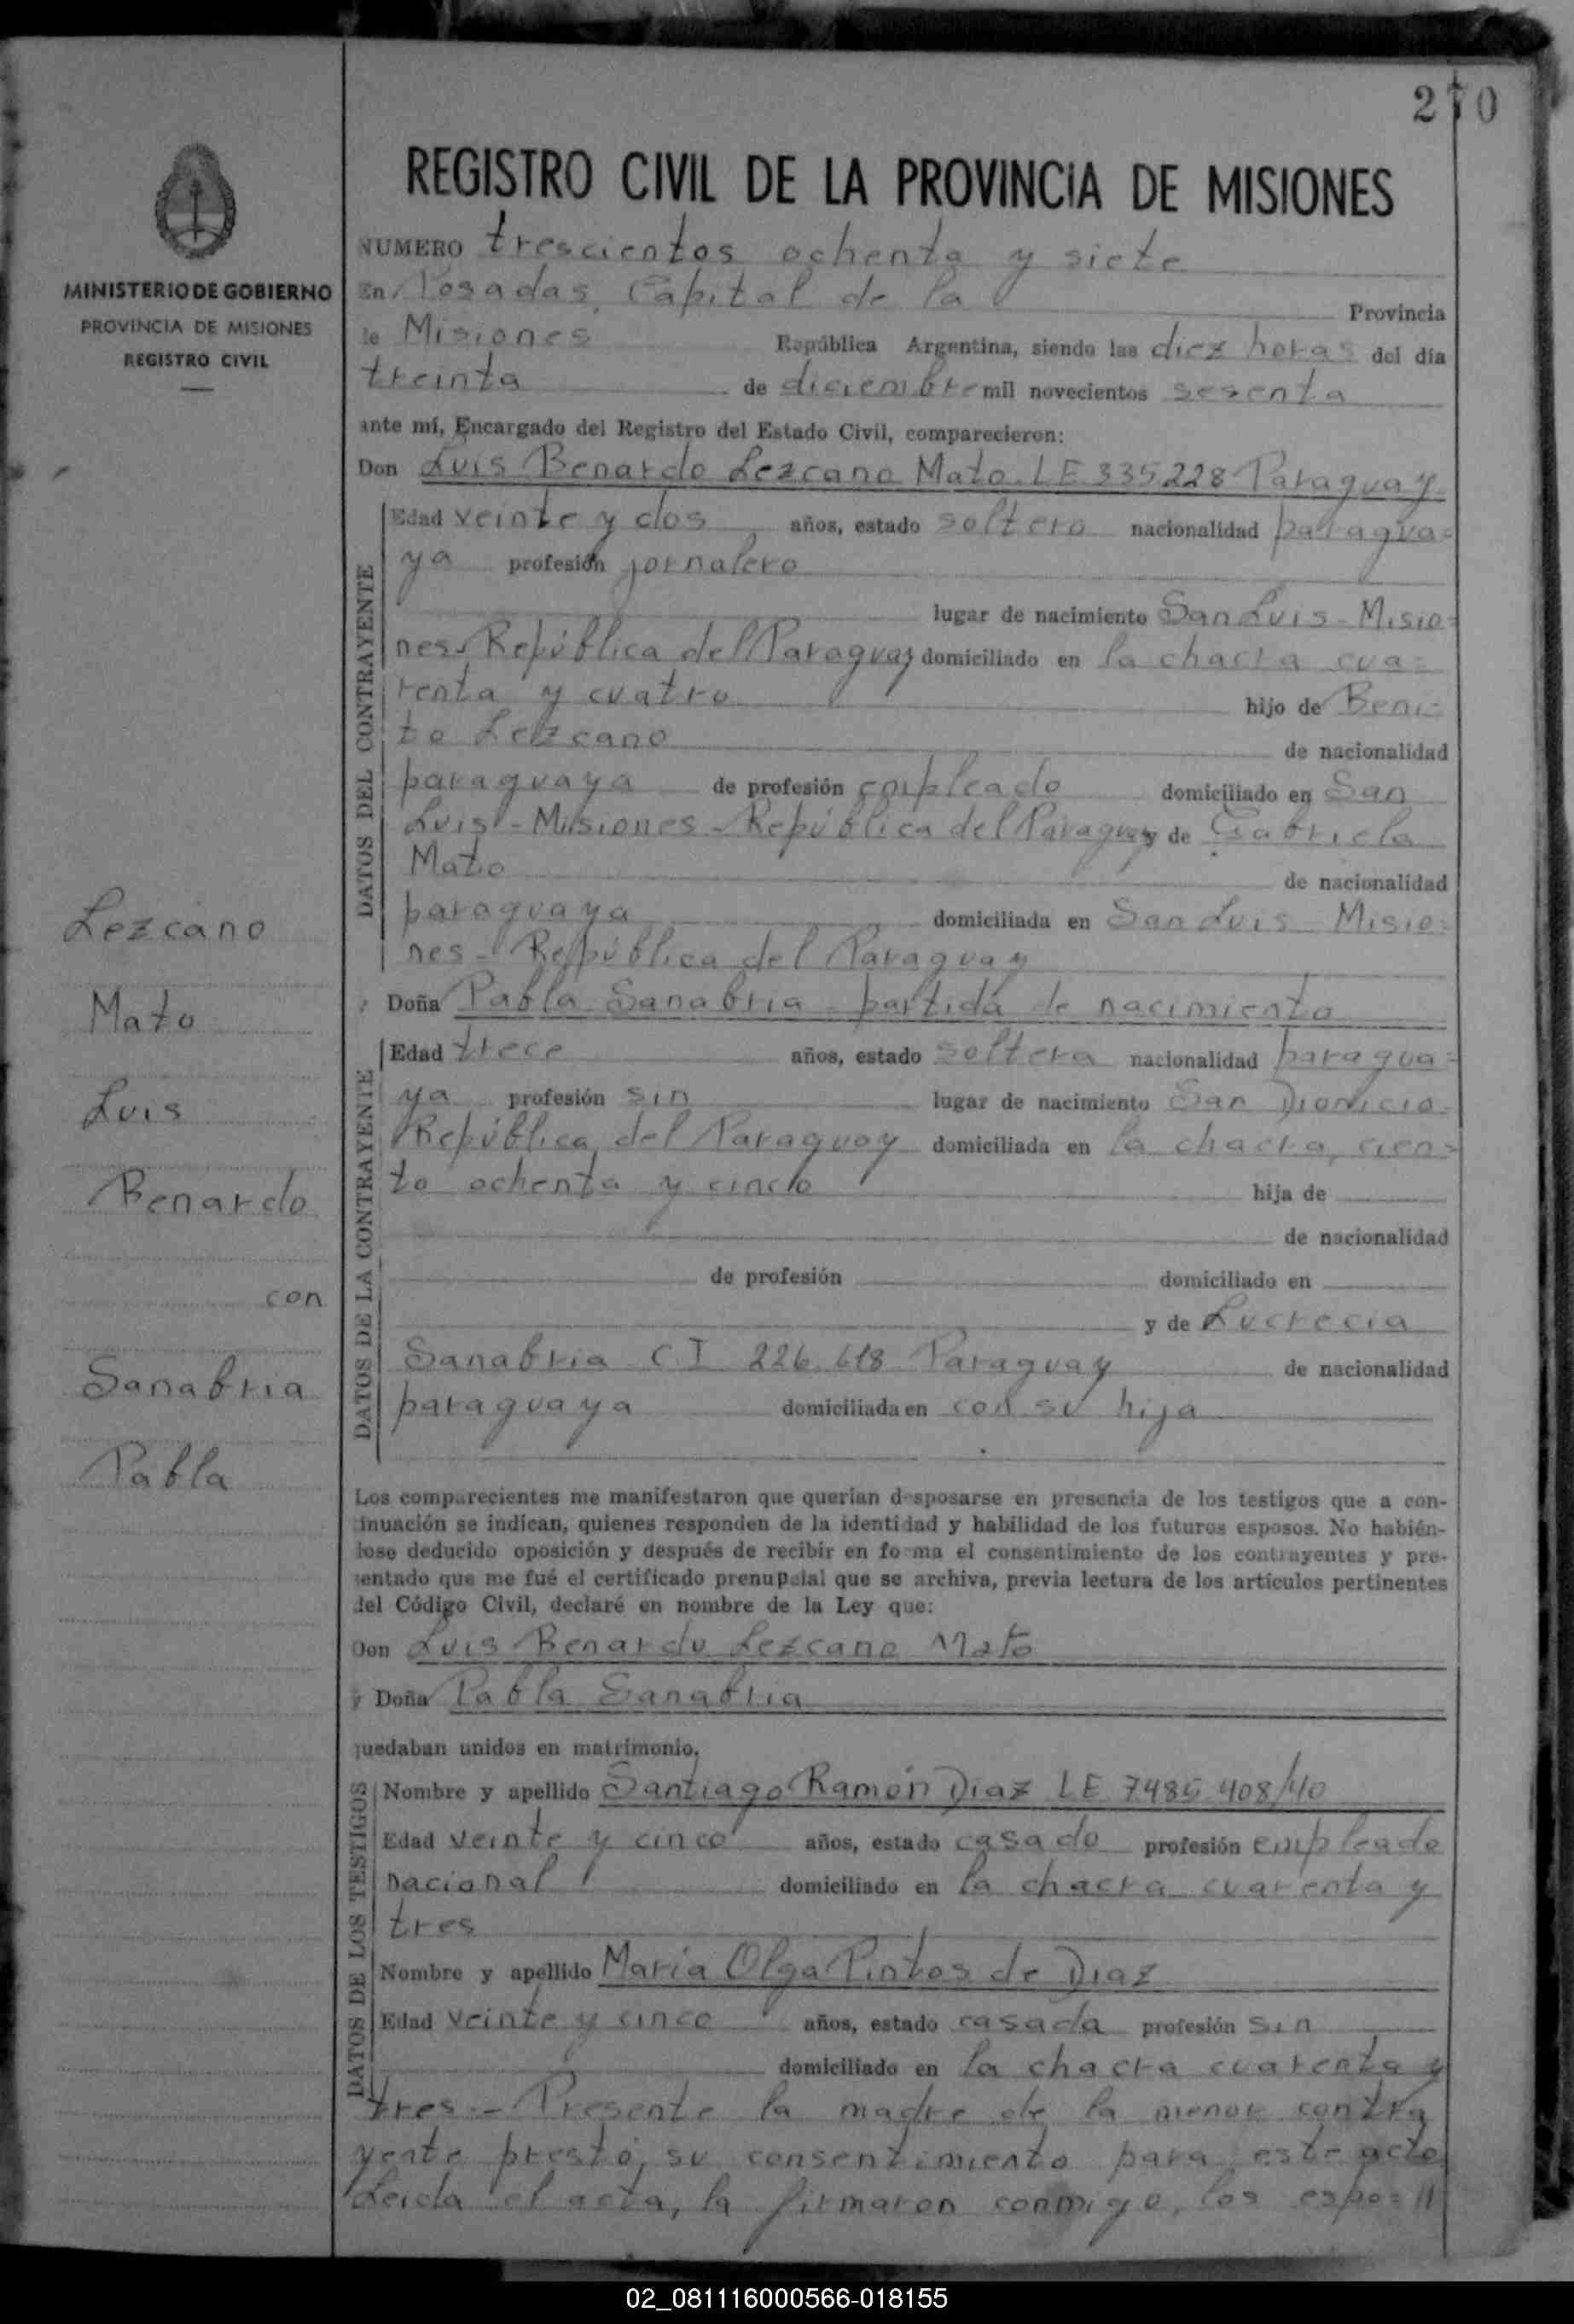 270
REGISTRO CIVIL DE LA PROVINCIA DE MISIONES
MINISTERIO DE GOBIERNO
PROVINCIA DE MISIONES
REGISTRO CIVIL
NUMERO trescientos ochenta y siete
En Posadas, Capital de la Provincia
de Misiones República Argentina, siendo las diez horas del día
treinta de diciembre mil novecientos sesenta
ante mí, Encargado del Registro del Estado Civil, comparecieron:
Don Luis Benardo Lezcano Mato. LE 335.228 Paraguay
DATOS DEL CONTRAYENTE
Edad veinte y dos años, estado soltero nacionalidad paragua=
ya profesión jornalero
lugar de nacimiento San Luis - Misio=
nes - República del Paraguay domiciliado en la chacra cua=
renta y cuatro hijo de Beni=
to Lezcano de nacionalidad
paraguaya de profesión empleado domiciliado en San
Luis - Misiones - República del Paraguay y de Gabriela
Mato de nacionalidad
paraguaya domiciliada en San Luis Misio=
nes - República del Paraguay
y Doña Pabla Sanabria - partida de nacimiento
DATOS DE LA CONTRAYENTE
Edad trece años, estado soltera nacionalidad paragua=
ya profesión sin lugar de nacimiento San Dionicio
República del Paraguay domiciliada en la chacra cien=
to ochenta y cinco hija de
de nacionalidad
de profesión domiciliado en
y de Lucrecia
Sanabria CI 226.618 Paraguay de nacionalidad
paraguaya domiciliada en con su hija
Los comparecientes me manifestaron que querían desposarse en presencia de los testigos que a con-
tinuación se indican, quienes responden de la identidad y habilidad de los futuros esposos. No habién-
dose deducido oposición y después de recibir en forma el consentimiento de los contrayentes y pre-
sentado que me fué el certificado prenupcial que se archiva, previa lectura de los artículos pertinentes
del Código Civil, declaré en nombre de la Ley que:
Don Luis Benardo Lezcano Mato
y Doña Pabla Sanabria
quedaban unidos en matrimonio.
DATOS DE LOS TESTIGOS
Nombre y apellido Santiago Ramón Diaz LE 7.485.408/40
Edad veinte y cinco años, estado casado profesión empleado
nacional domiciliado en la chacra cuarenta y
tres
Nombre y apellido María Olga Pintos de Diaz
Edad veinte y cinco años, estado casada profesión sin
domiciliado en la chacra cuarenta y
tres - Presente la madre de la menor contra
yente prestó su consentimiento para este acto
Leida el acta, la firmaron conmigo, los espo= //
Lezcano
Mato
Luis
Benardo
con
Sanabria
Pabla
02_081116000566-018155